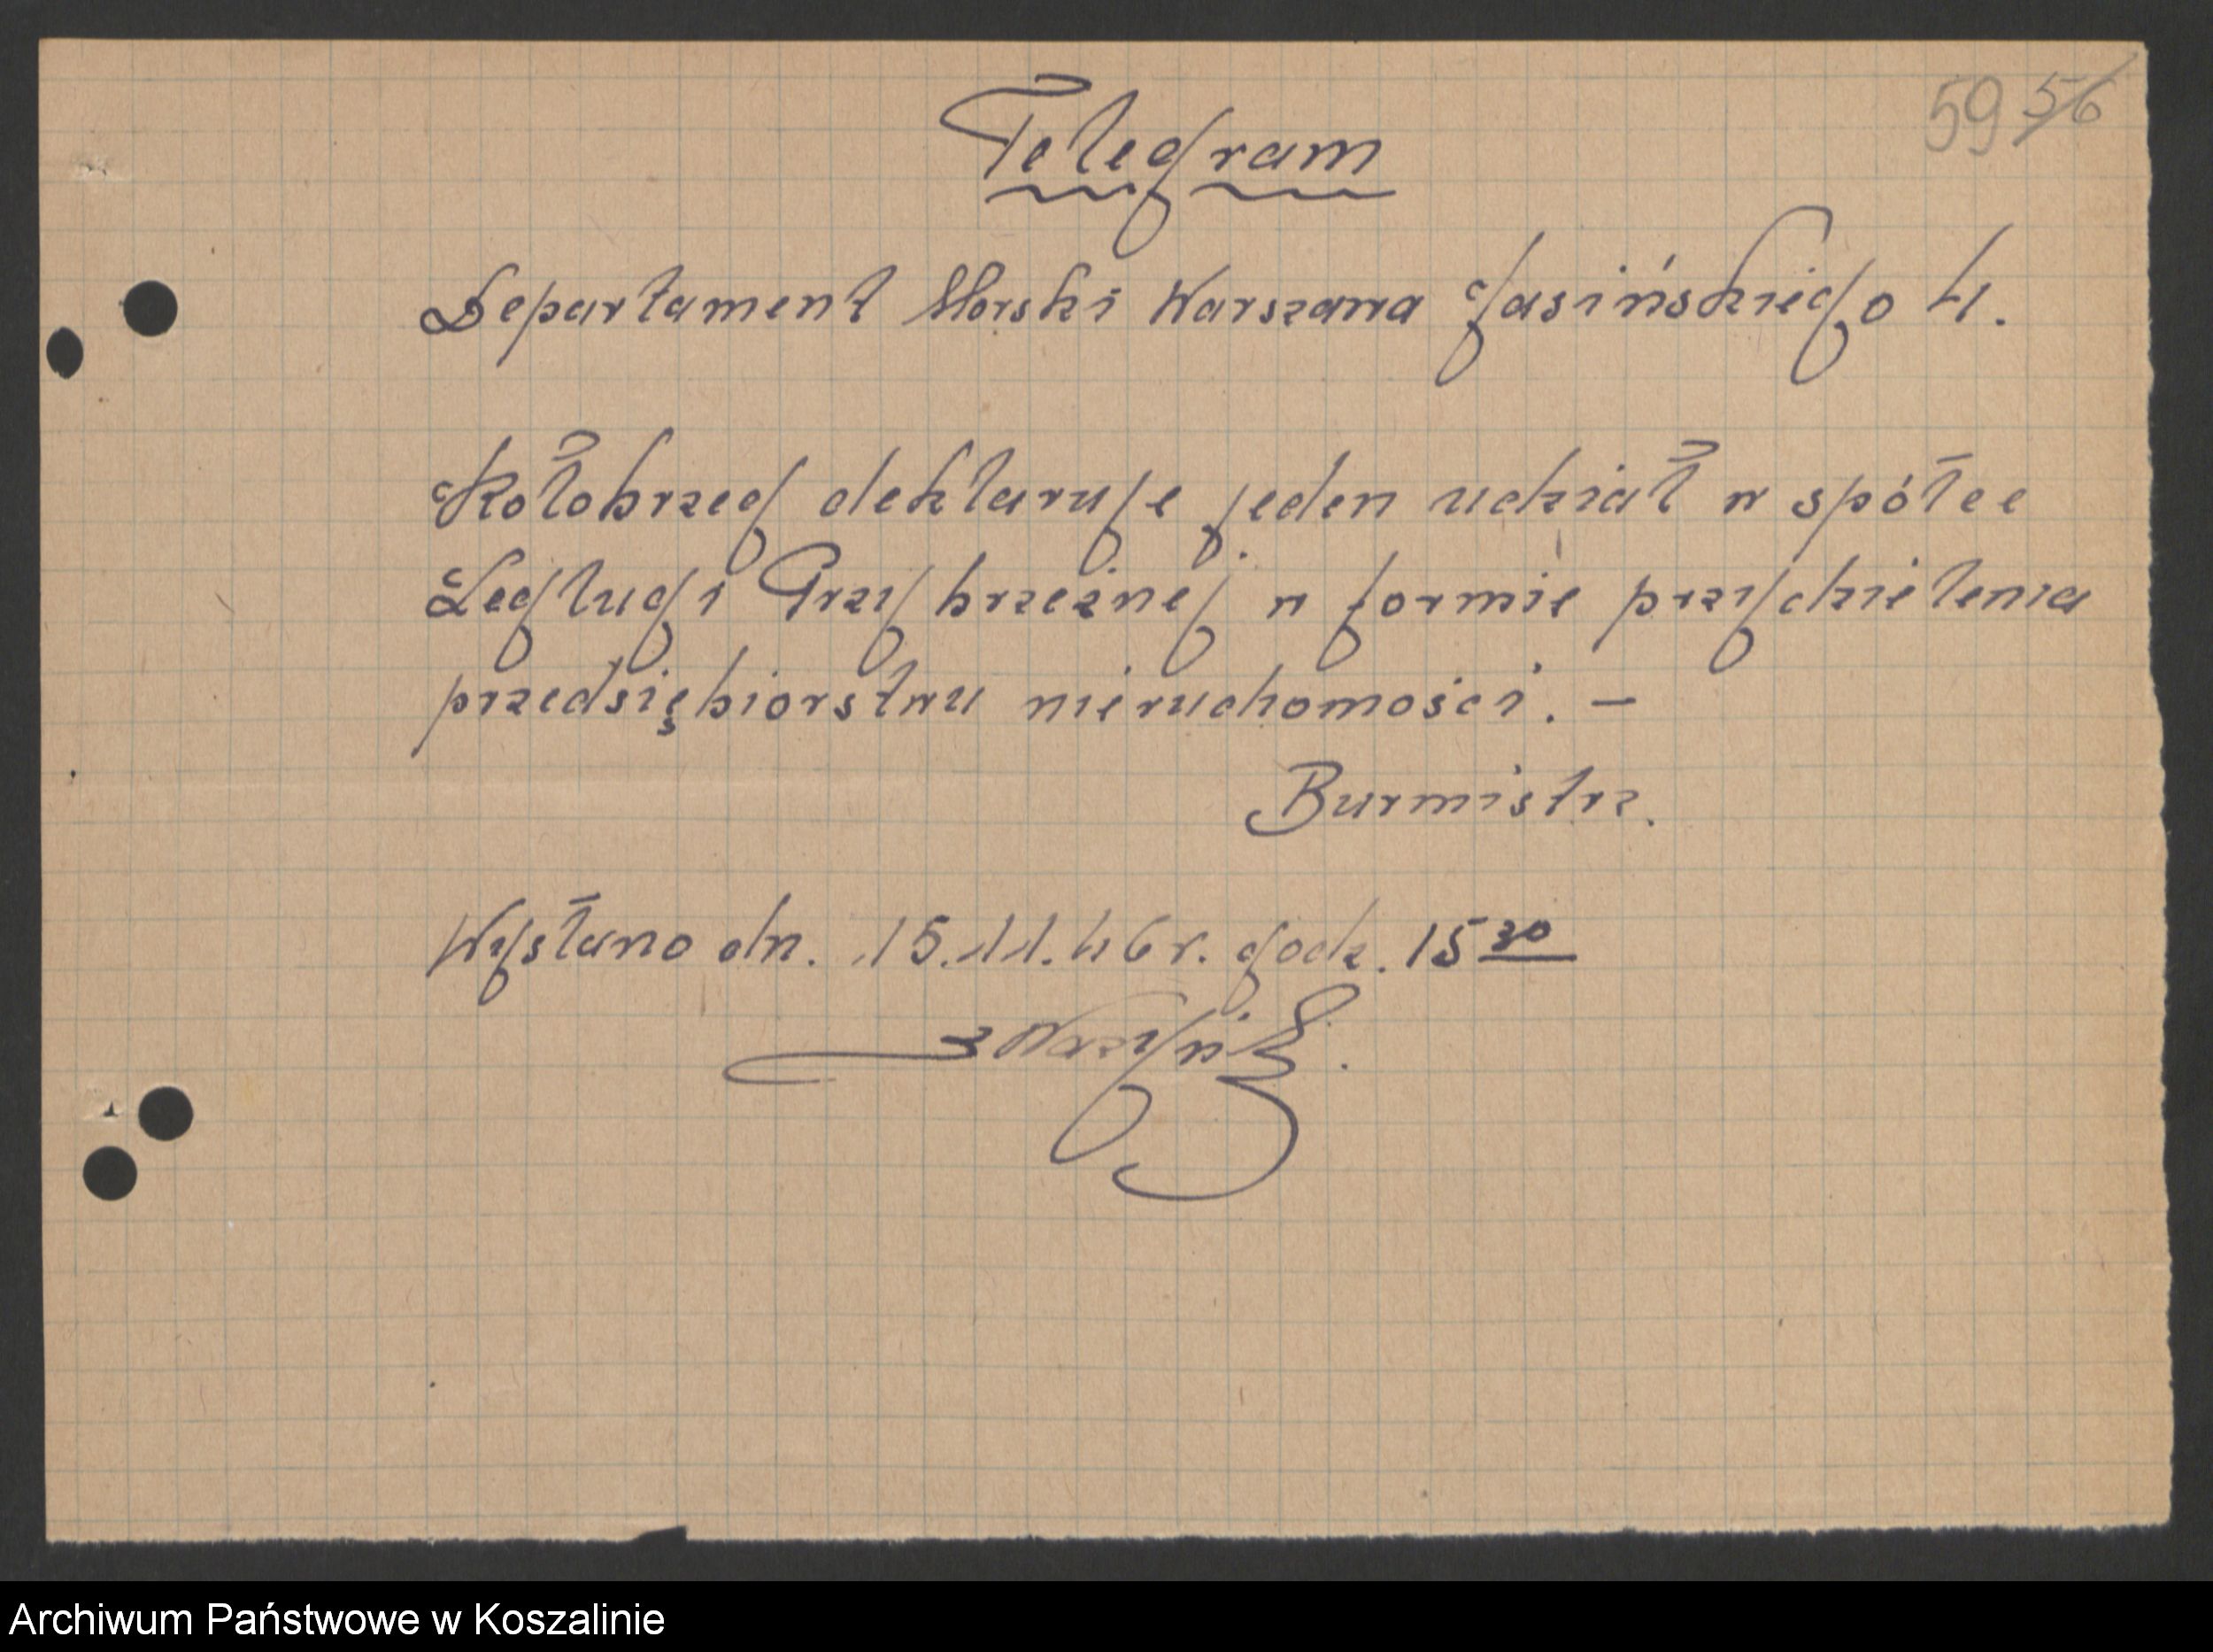 59 56
Telegram
Departament Morski Warszawa Jasińskiego 4.
Kołobrzeg deklaruje jeden udział w spółce
Żeglugi Przybrzeżnej w formie przydzielenia
przedsiębiorstwu nieruchomości. –
Burmistrz.
Wysłano dn. 15.11.46 r. godz. 15 30
Archiwum Państwowe w Koszalinie